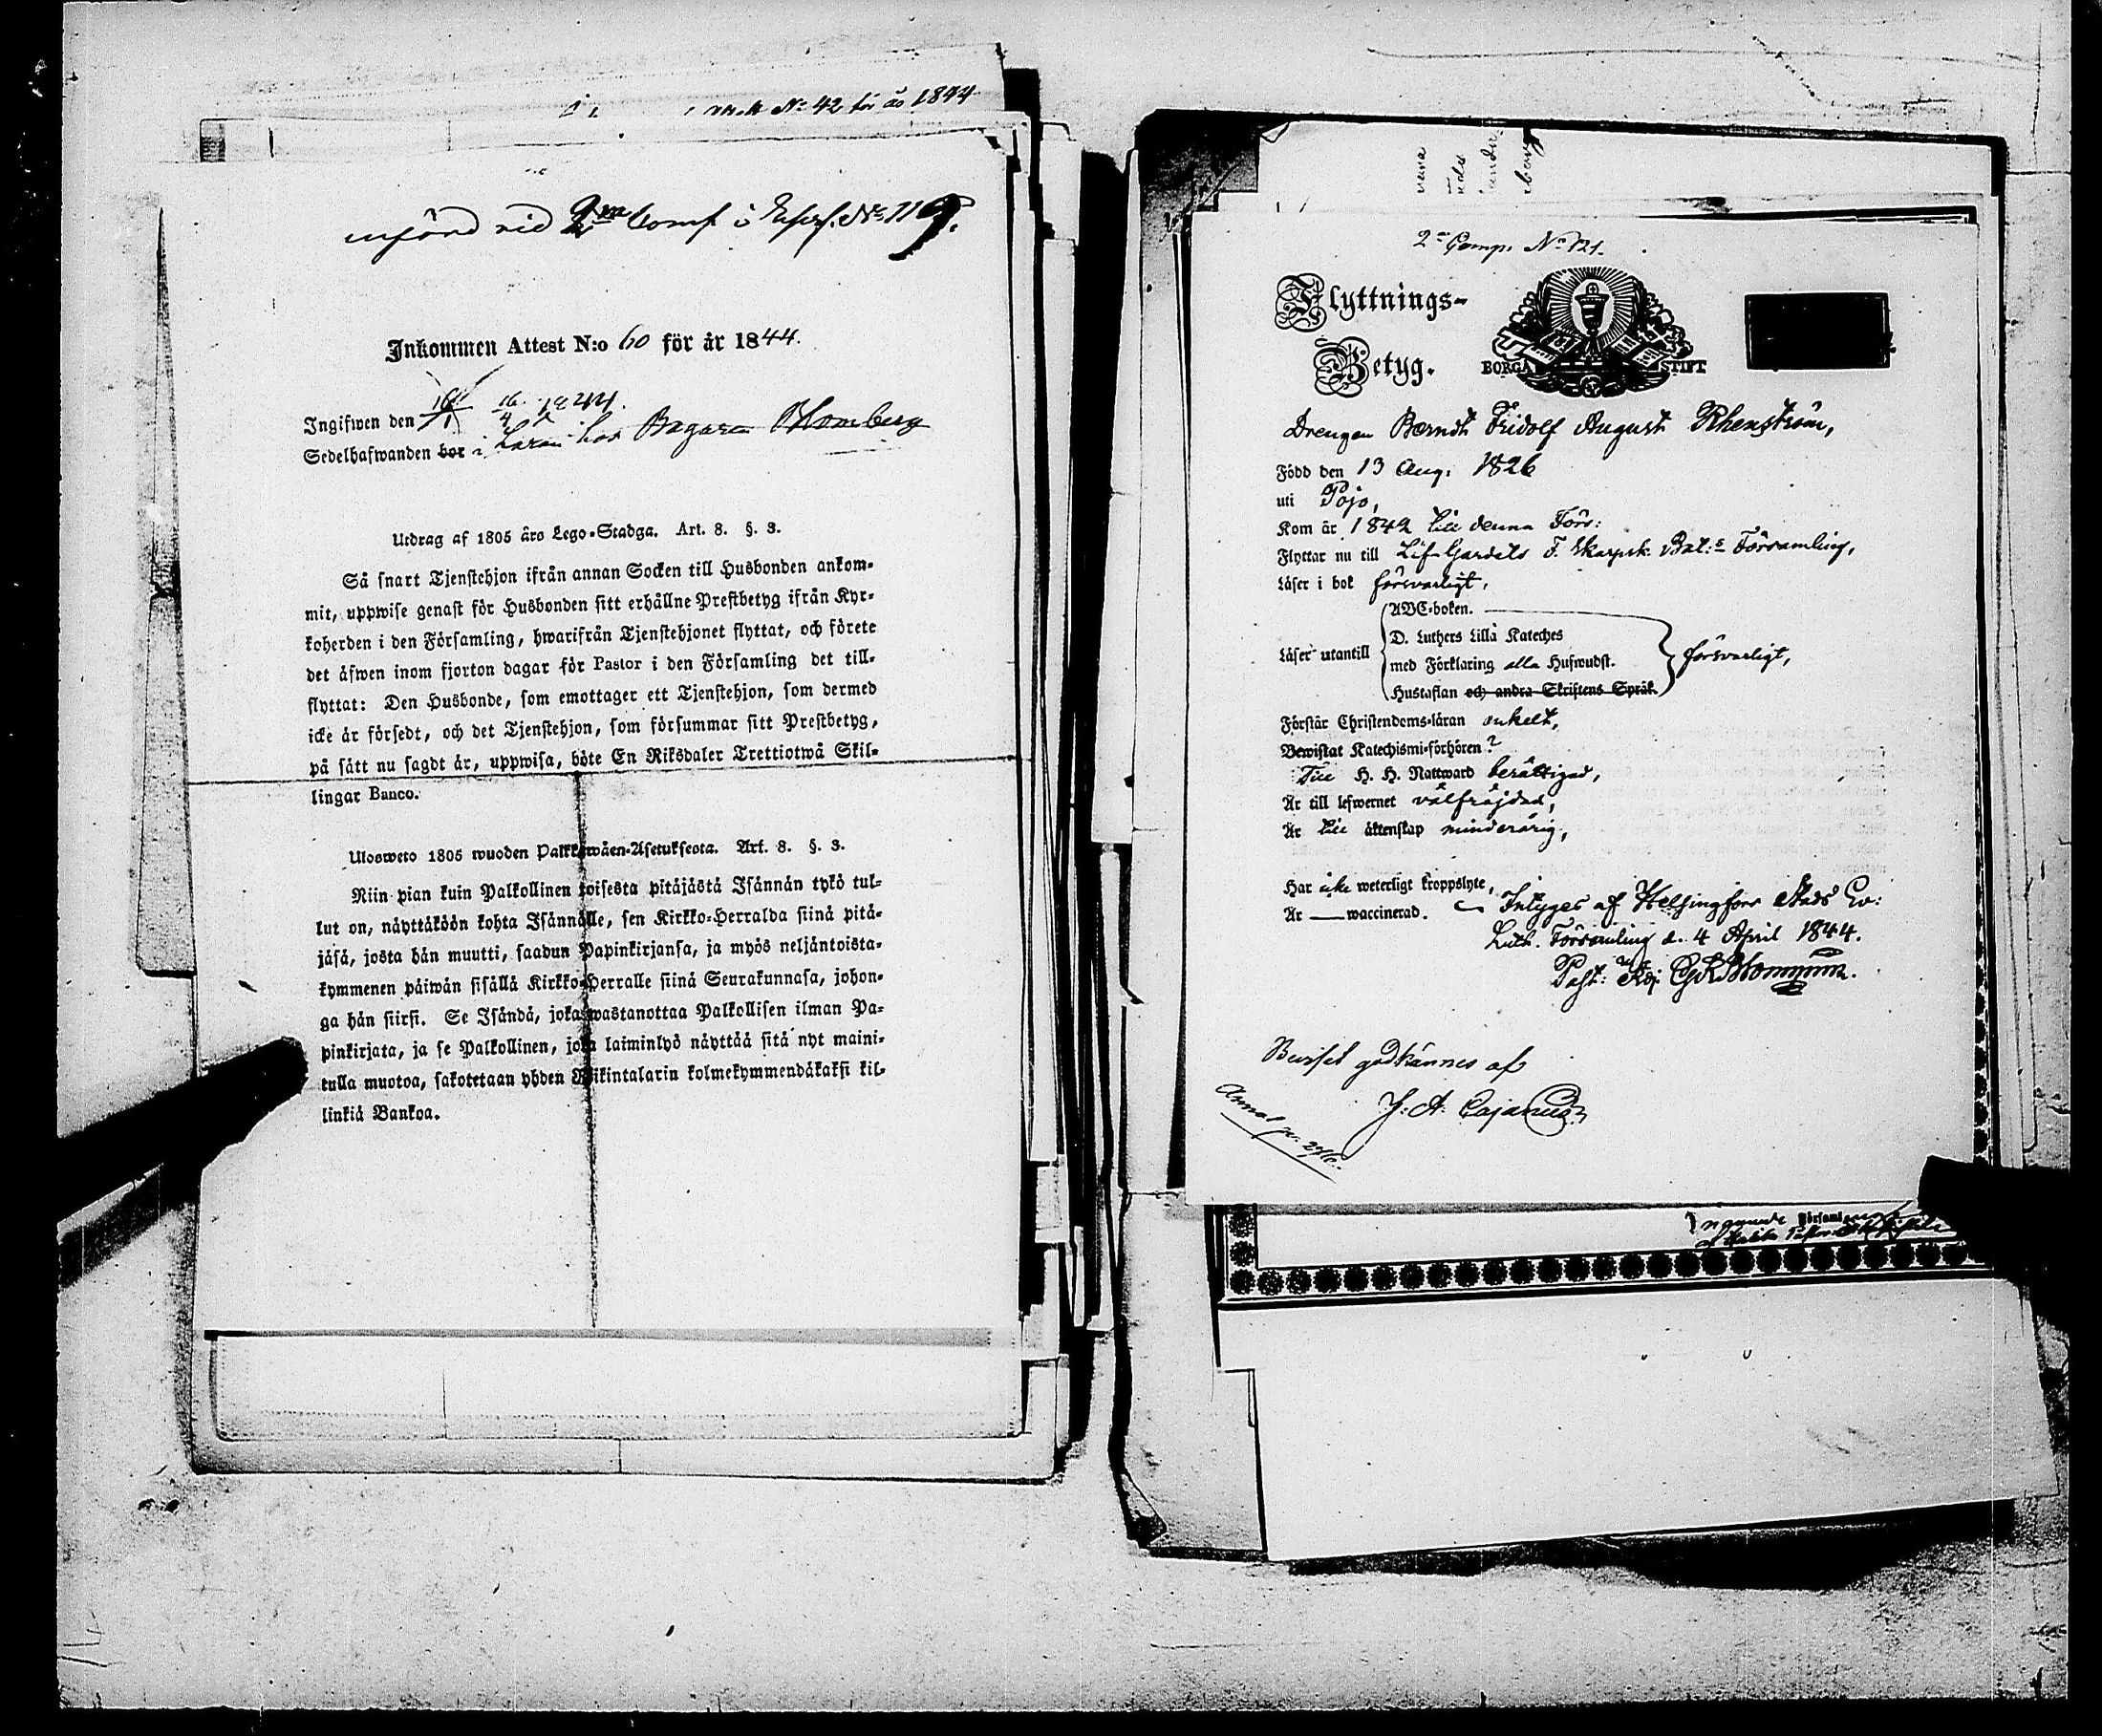 N:o 42 för år 1844
införd vid 2:dra Comp. i Expf. No 119.
Inkommen Attest N:o 60 för år 1844.
Ingifwen den 16/4 1844.
Sedelhafwanden bor i Läran hos Bagaren Blomberg
Utdrag af 1805 års Lego-Stadga. Art. 8. §. 3.
Så snart Tjenstehjon ifrån annan Socken till Husbonden ankom-
mit, uppwise genast för Husbonden sitt erhållne Prestbetyg ifrån Kyr-
koherden i den Församling, hwarifrån Tjenstehjonet flyttat, och förete
det åfwen inom fjorton dagar för Pastor i den Församling det till-
flyttat: Den Husbonde, som emottager ett Tjenstehjon, som dermed
icke är försedt, och det Tjenstehjon, som försummar sitt Prestbetyg,
på sätt nu sagdt är, uppwisa, böte En Riksdaler Trettiotwå Skil-
lingar Banco.
Ulosweto 1805 wuoden Palkkawäen-Asetuksesta. Art. 8. §. 3.
Niin pian kuin Palkollinen toisesta pitäjästä Isännän tykö tul-
lut on, näyttäköön kohta Isännälle, sen Kirkko-Herralda siinä pitä-
jäsä, josta hän muutti, saadun Papinkirjansa, ja myös neljäntoista-
kymmenen päiwän sisällä Kirkko-Herralle siinä Seurakunnasa, johon-
ga hän siirsi. Se Isändä, joka wastanottaa Palkollisen ilman Pa-
pinkirjata, ja se Palkollinen, joka laiminlyö näyttää sitä nyt maini-
tulla muotoa, sakotetaan yhden Riikintalarin kolmekymmendäkaksi kil-
linkiä Bankoa.
2:a Comp. No 121.
Flyttnings-
Betyg.
BORGÅ STIFT
Drengen Berndt Fridolf August Rhenström,
Född den 13 Aug. 1826
uti Pojo,
Kom år 1842 till denna Förs:
Flyttar nu till Lif-Gardets F. Skarpsk. Bat:s Församling,
Läser i bok försvarligt,
Läser utantill
ABC-boken.
D. Luthers Lilla Kateches
med Förklaring alla Hufwudst.
Hustaflan och andra Skriftens Språk.
försvarligt,
Förstår Christendoms-läran enkelt,
Bewistat Katechismi-förhören ?
Till H. H. Nattward berättigad,
Är till lefwernet välfräjdad,
Är till äktenskap minderårig,
Har icke weterligt kroppslyte,
Är — waccinerad.
Intygas af Helsingfors Stads Ev:
Luth. Församling d. 4 April 1844.
Beviset godkännes af
J: A: Cajanus